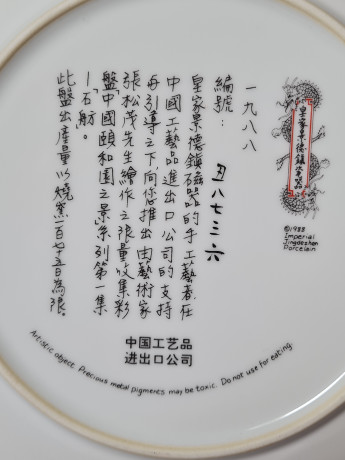 皇家景德鎮瓷器
©1988
Imperial
Jingdezhen
Porcelain
一九八八
編號：
丑八七三六
皇家景德鎮磁器的手工藝者在
中國工藝品進出口公司的支持
與引導之下，向您推出由藝術家
張松茂先生繪作之限量收集彩
盤「中國頤和園之景」系列第一集
「石舫」。
此盤出產量以燒窯一百七十五日為限。
中国工艺品
进出口公司
Artistic object. Precious metal pigments may be toxic. Do not use for eating.